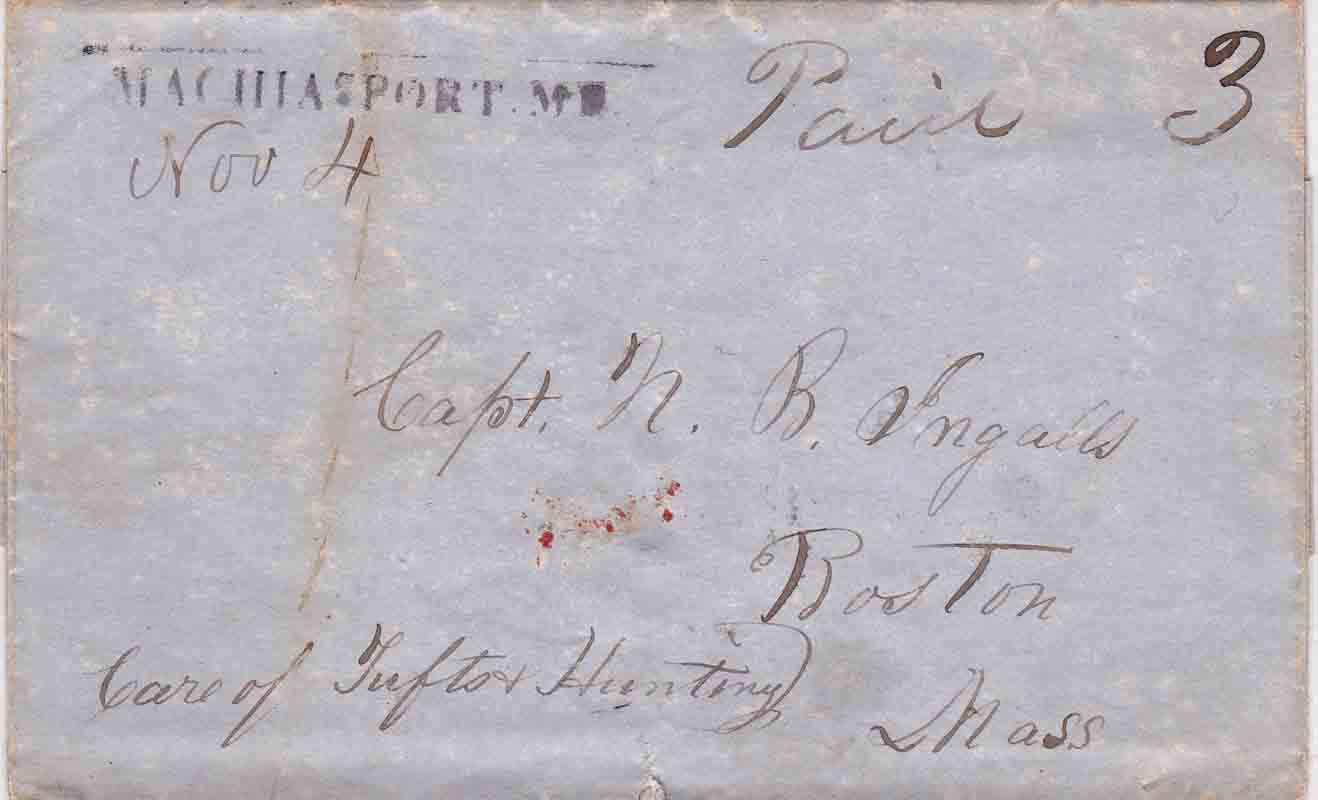 MACHIASPORT. ME.
Paid 3
Nov 4
Capt. N. B. Ingalls
Boston
Mass
Care of Tufts & Hunting